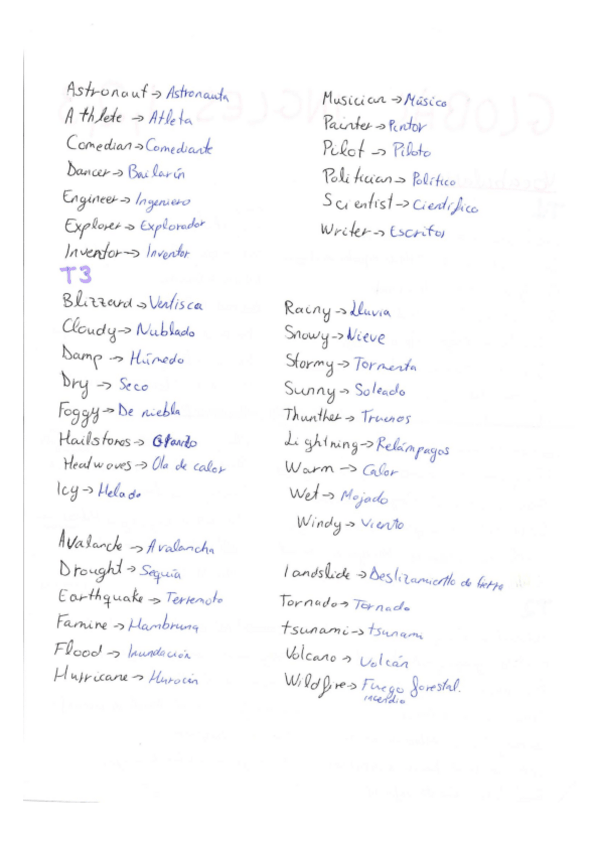 Astronaut → Astronauta
Athlete → Atleta
Comedian → Comediante
Dancer → Bailarín
Engineer → Ingeniero
Explorer → Explorador
Inventor → Inventor
Musician → Músico
Painter → Pintor
Pilot → Piloto
Politician → Político
Scientist → Científico
Writer → Escritor
T3
Blizzard → Ventisca
Cloudy → Nublado
Damp → Húmedo
Dry → Seco
Foggy → De niebla
Hailstores → Granizo
Heatwaves → Ola de calor
Icy → Helado
Rainy → Lluvia
Snowy → Nieve
Stormy → Tormenta
Sunny → Soleado
Thunther → Truenos
Lightning → Relámpagos
Warm → Calor
Wet → Mojado
Windy → Viento
Avalanche → Avalancha
Drought → Sequía
Earthquake → Terremoto
Famine → Hambruna
Flood → Inundación
Hurricane → Huracán
landslide → Deslizamiento de tierra
Tornado → Tornado
tsunami → tsunami
Volcano → Volcán
Wildfire → Fuego forestal.
incendio